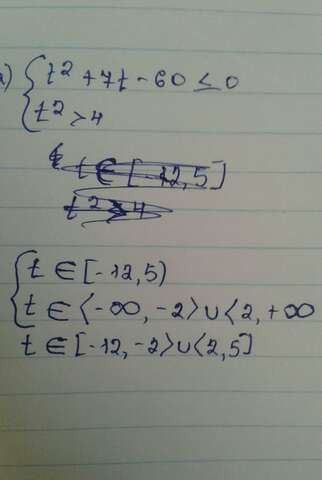 a) { t² + 7t - 60 ≤ 0
t² > 4
t ∈ [-12, 5]
t² > 4
{ t ∈ [-12, 5)
t ∈ ⟨-∞, -2⟩ ∪ ⟨2, +∞
t ∈ [-12, -2⟩ ∪ ⟨2, 5]